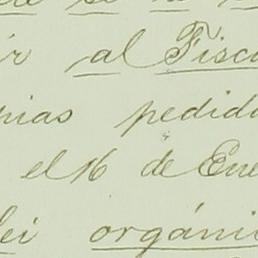 ir al Fisca
pias pedida
el 16 de Ene
lei orgánic